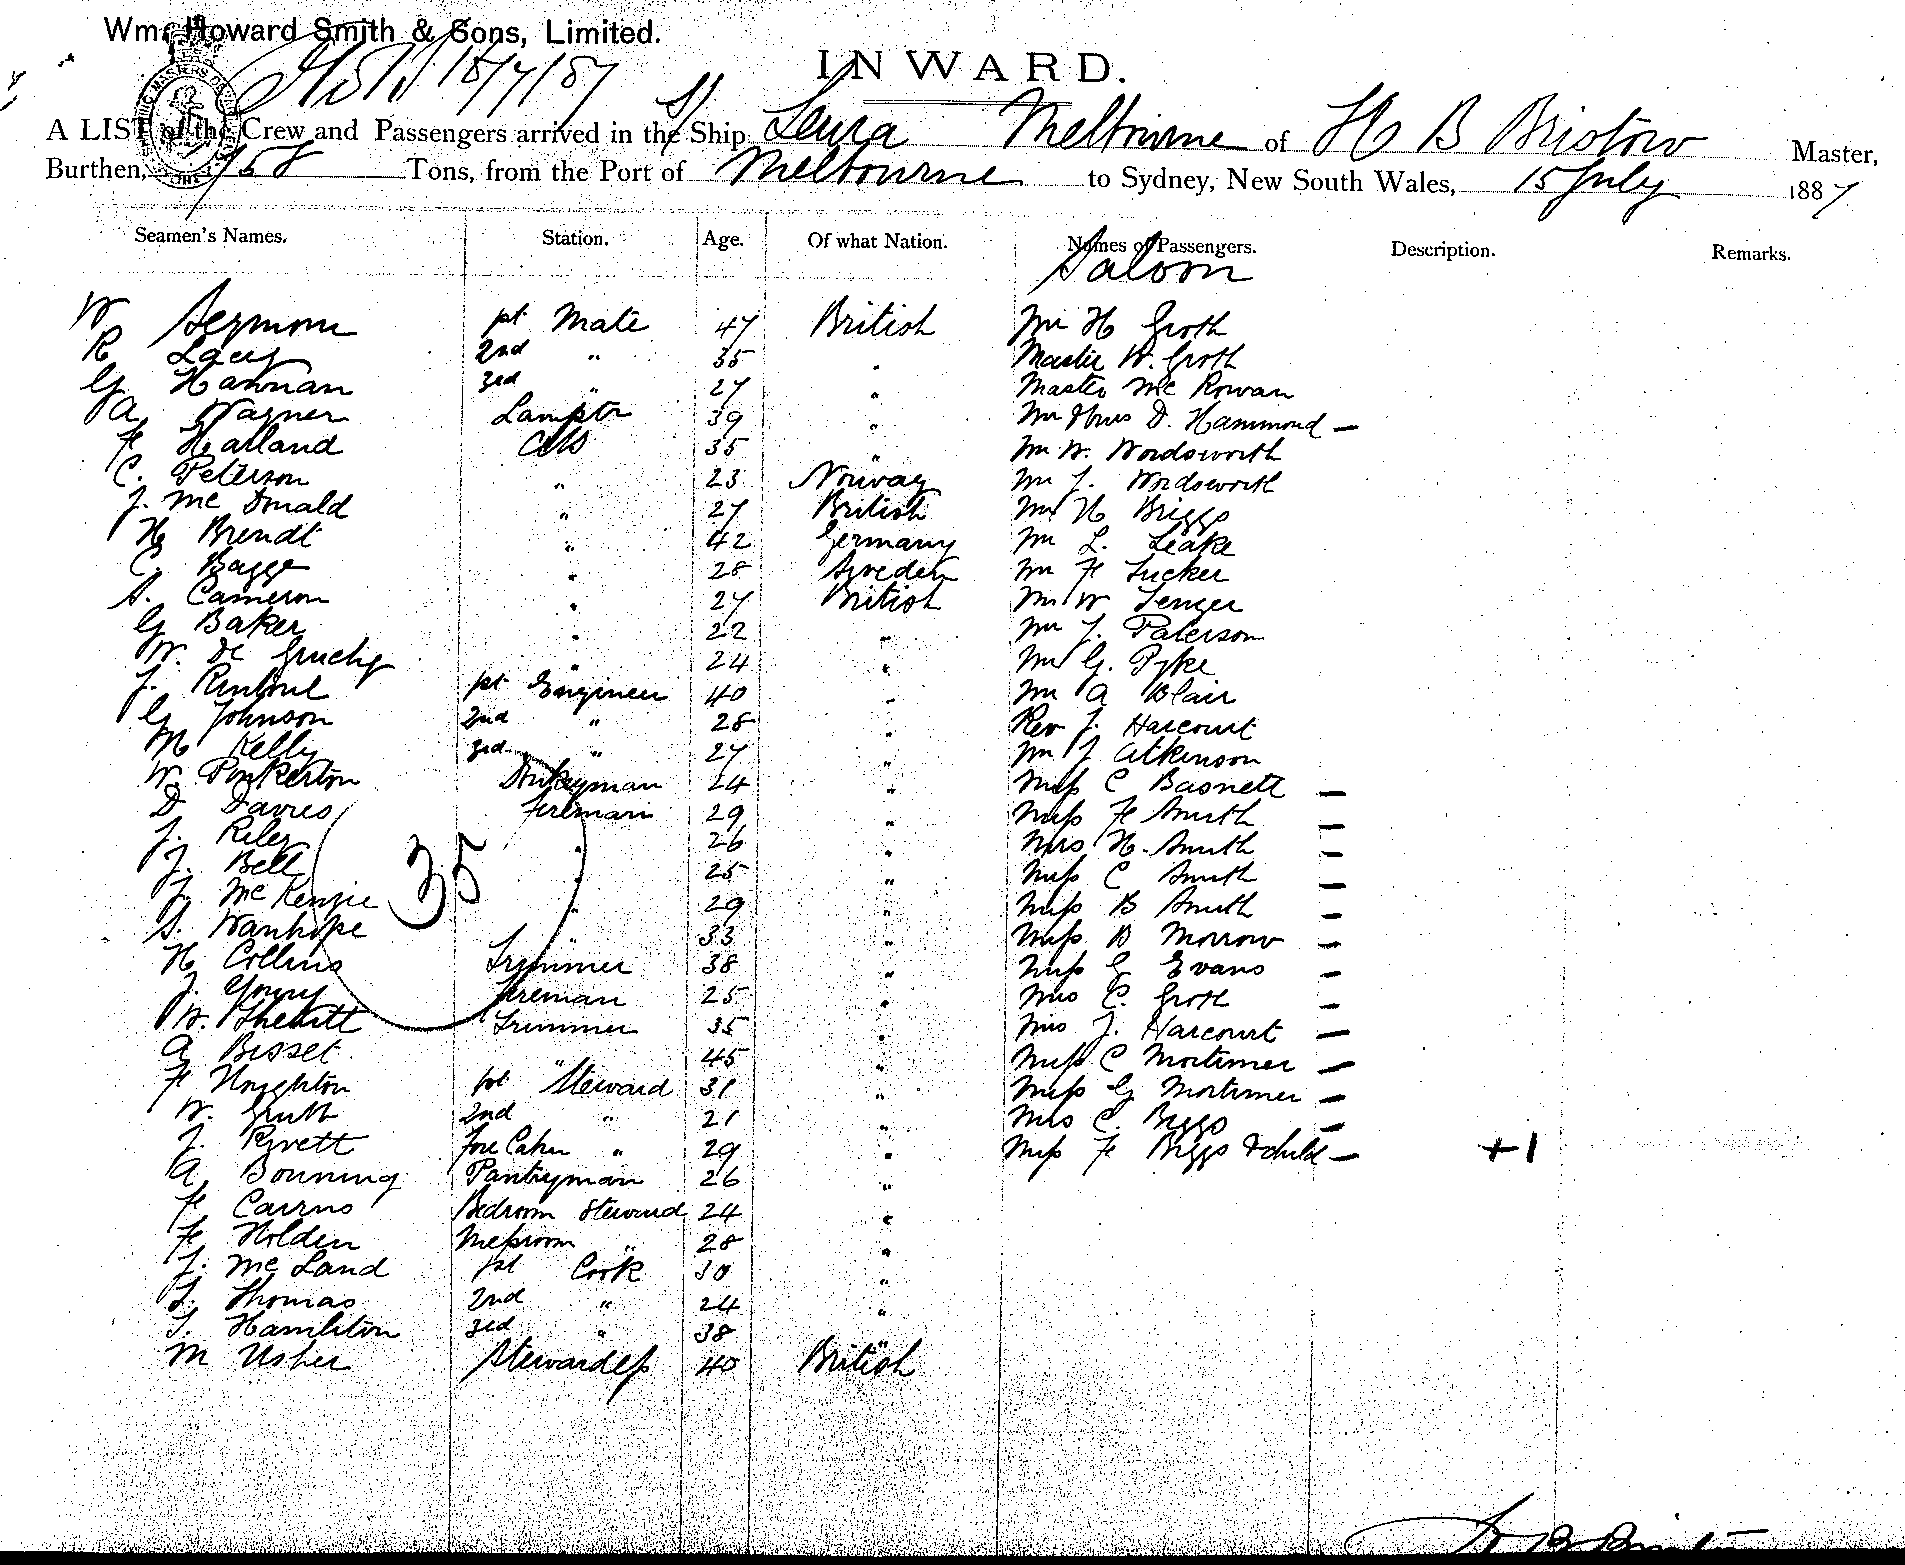 Wm. Howard Smith & Sons, Limited.
15/7/87
INWARD.
A LIST of the Crew and Passengers arrived in the Ship Leura Melbourne of H B Bristow Master,
Burthen, 758 Tons, from the Port of Melbourne to Sydney, New South Wales, 15 July 1887
Seamen's Names. Station. Age. Of what Nation. Names of Passengers. Description. Remarks.
Saloon
W Sermon pt Mate 47 British Mr H Groth
R Lacey 2nd " 35 " Master W. Groth
G Hannan 3rd " 27 " Master McRowan
A Wagner Lamptr 39 " Mr & Mrs D. Hammond —
F Harland AB 35 " Mr W. Wordsworth
C. Peterson " 23 Norway Mr J. Wordsworth
J. McDonald " 27 British Mr H Briggs
H Brendt " 42 Germany Mr L. Leake
C. Bagge " 28 Sweden Mr F Tucker
A. Cameron " 27 British Mr W Tenger
G Baker " 22 " Mr J. Paterson
W. De Gruchy " 24 " Mr G. Pyke
J. Rentoul pt Engineer 40 " Mr A Blair
G Johnson 2nd " 28 " Rev J. Harcourt
M Kelly 3rd " 27 " Mr J Atkinson
W. Pinkerton Donkeyman 24 " Miss C Basnett —
D Davies Fireman 29 " Miss F Smith —
J. Riley " 26 " Mrs H. Smith —
J. Bell " 25 " Miss C Smith —
J. McKenzie 35 " 29 " Miss B Smith —
S. Wanhope " 33 " Miss B Morrow —
H Collins Trimmer 38 " Miss G Evans —
J. Young Fireman 25 " Mrs C. Groth —
W. Trimmer 35 " Mrs J. Harcourt —
A Bisset " 45 " Miss C Mortimer —
F Houghton pt Steward 31 " Miss G Mortimer —
W. 2nd " 21 " Mrs C. Biggs —
J. Ryvett Fore Cabin " 29 " Miss F Biggs & child — +1
A Bonning Pantryman 26 "
F Cairns Bedroom Steward 24 "
F Holden Messroom " 28 "
J. McLand pt Cook 30 "
T. Thomas 2nd " 24 "
T. Hamilton 3rd " 38 "
M Usher Stewardess 40 British